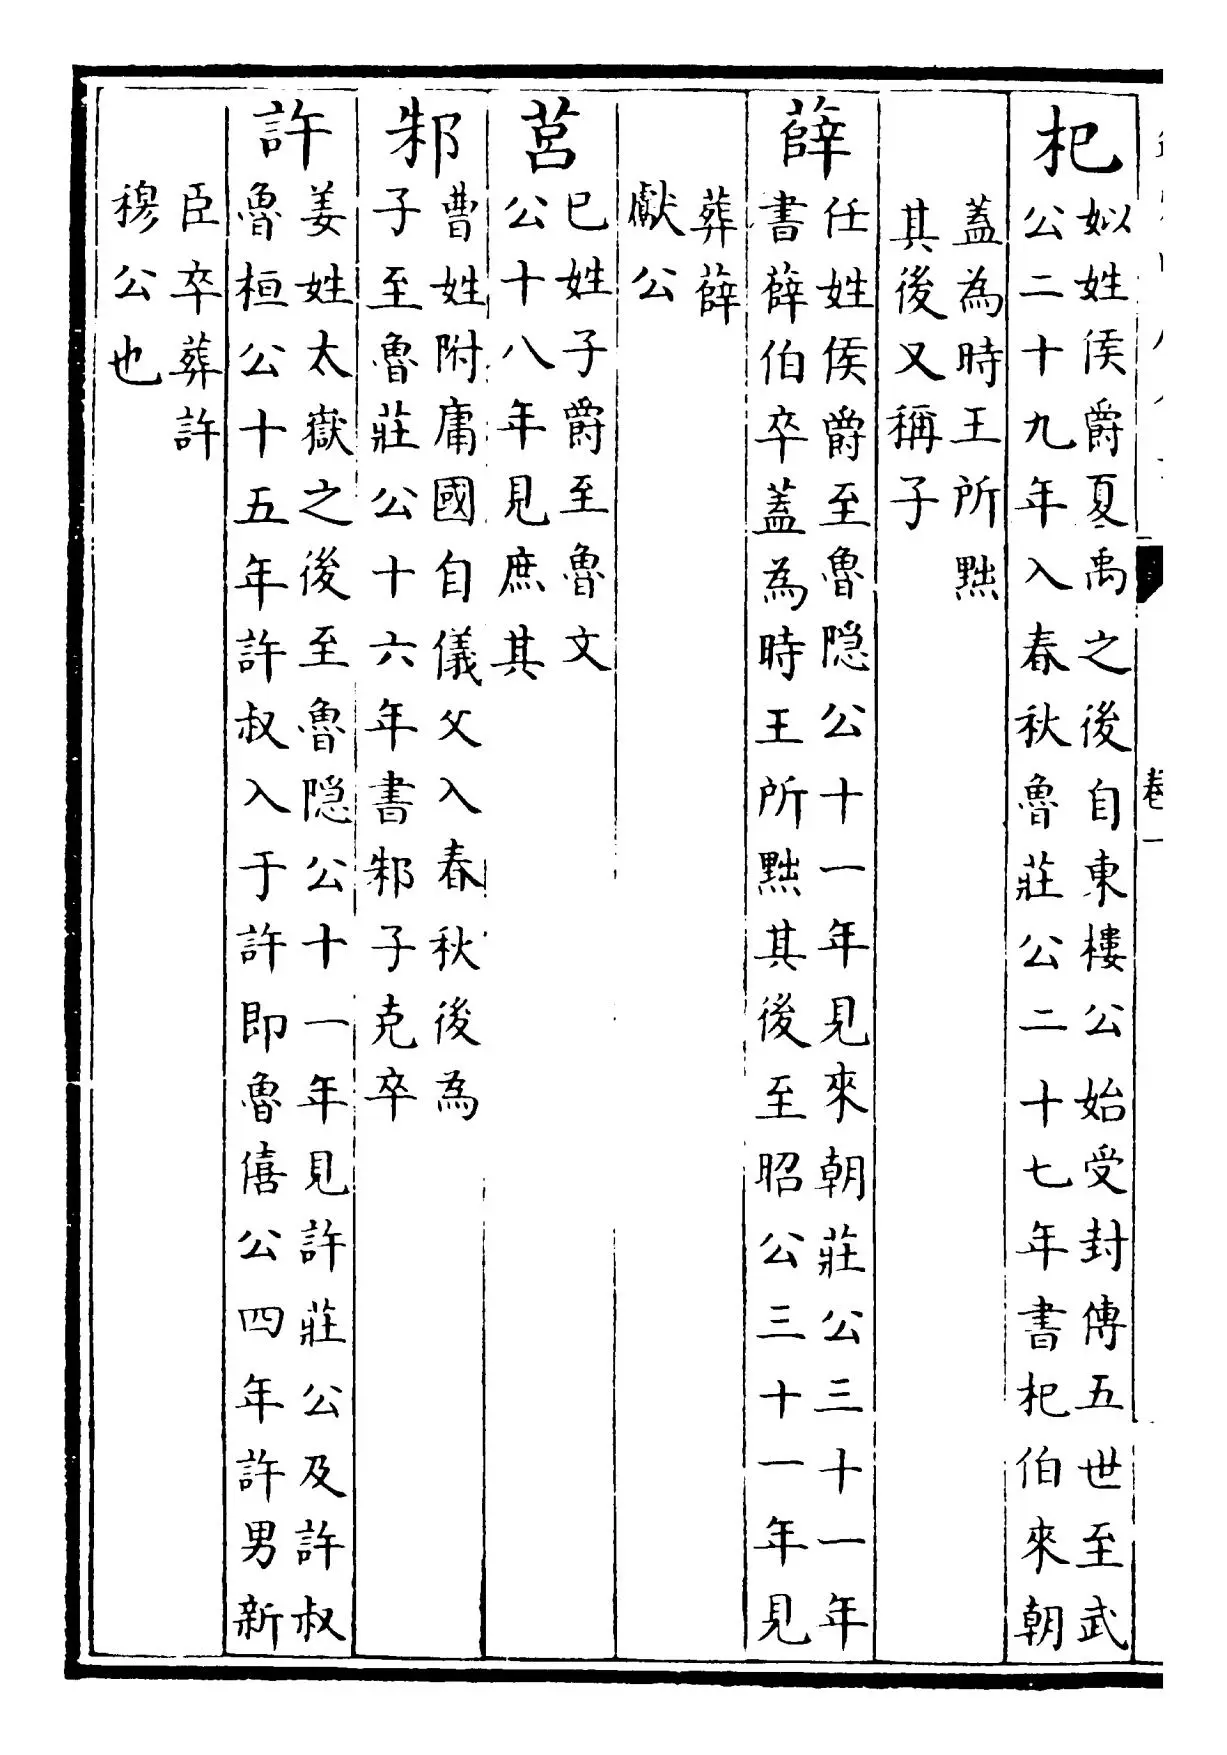 杞
姒姓侯爵夏禹之後自東樓公始受封傳五世至武
公二十九年入春秋魯莊公二十七年書杞伯來朝
蓋為時王所黜
其後又稱子
薛
任姓侯爵至魯隱公十一年見來朝莊公三十一年
書薛伯卒蓋為時王所黜其後至昭公三十一年見
葬薛
獻公
莒
己姓子爵至魯文
公十八年見庶其
邾
曹姓附庸國自儀父入春秋後為
子至魯莊公十六年書邾子克卒
許
姜姓太嶽之後至魯隱公十一年見許莊公及許叔
魯桓公十五年許叔入于許即魯僖公四年許男新
臣卒葬許
穆公也
卷一